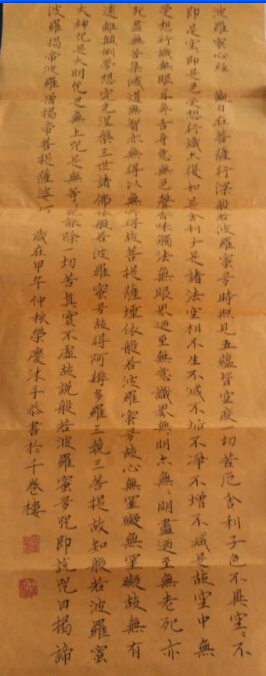 波羅蜜心經 觀自在菩薩行深般若波羅蜜多時照見五蘊皆空度一切苦厄舍利子色不異空、不
即是空、即是色受想行識亦復如是舍利子是諸法空相不生不滅不垢不淨不增不減是故空中無
受想行識無眼耳鼻舌身意無色聲香味觸法無眼界迺至無意識界無明亦無、明盡迺至無老死亦
死盡無苦集滅道無智亦無得以無所得故菩提薩埵依般若波羅蜜多故心無罣礙無罣礙故無有
遠離顛倒夢想究竟涅槃三世諸佛依般若波羅蜜多故得阿耨多羅三藐三菩提故知般若波羅蜜
大神咒是大明咒是無上咒是無等、咒能除一切苦真實不虛故說般若波羅蜜多咒即說咒曰揭諦
波羅揭帝波羅僧揭帝菩提薩婆訶 歲在甲午仲秋榮慶沐手恭書於千卷樓